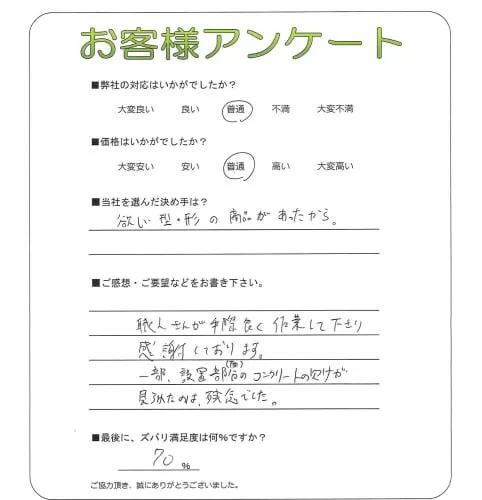 お客様アンケート
■弊社の対応はいかがでしたか？
大変良い 良い 普通 不満 大変不満
■価格はいかがでしたか？
大変安い 安い 普通 高い 大変高い
■当社を選んだ決め手は？
欲しい型・形の商品があったから。
■ご感想・ご要望などをお書き下さい。
職人さんが手際良く作業して下さり
感謝しております。
一部、設置部のコンクリートの欠けが
見られたのは、残念でした。
■最後に、ズバリ満足度は何%ですか？
70 %
ご協力頂き、誠にありがとうございました。